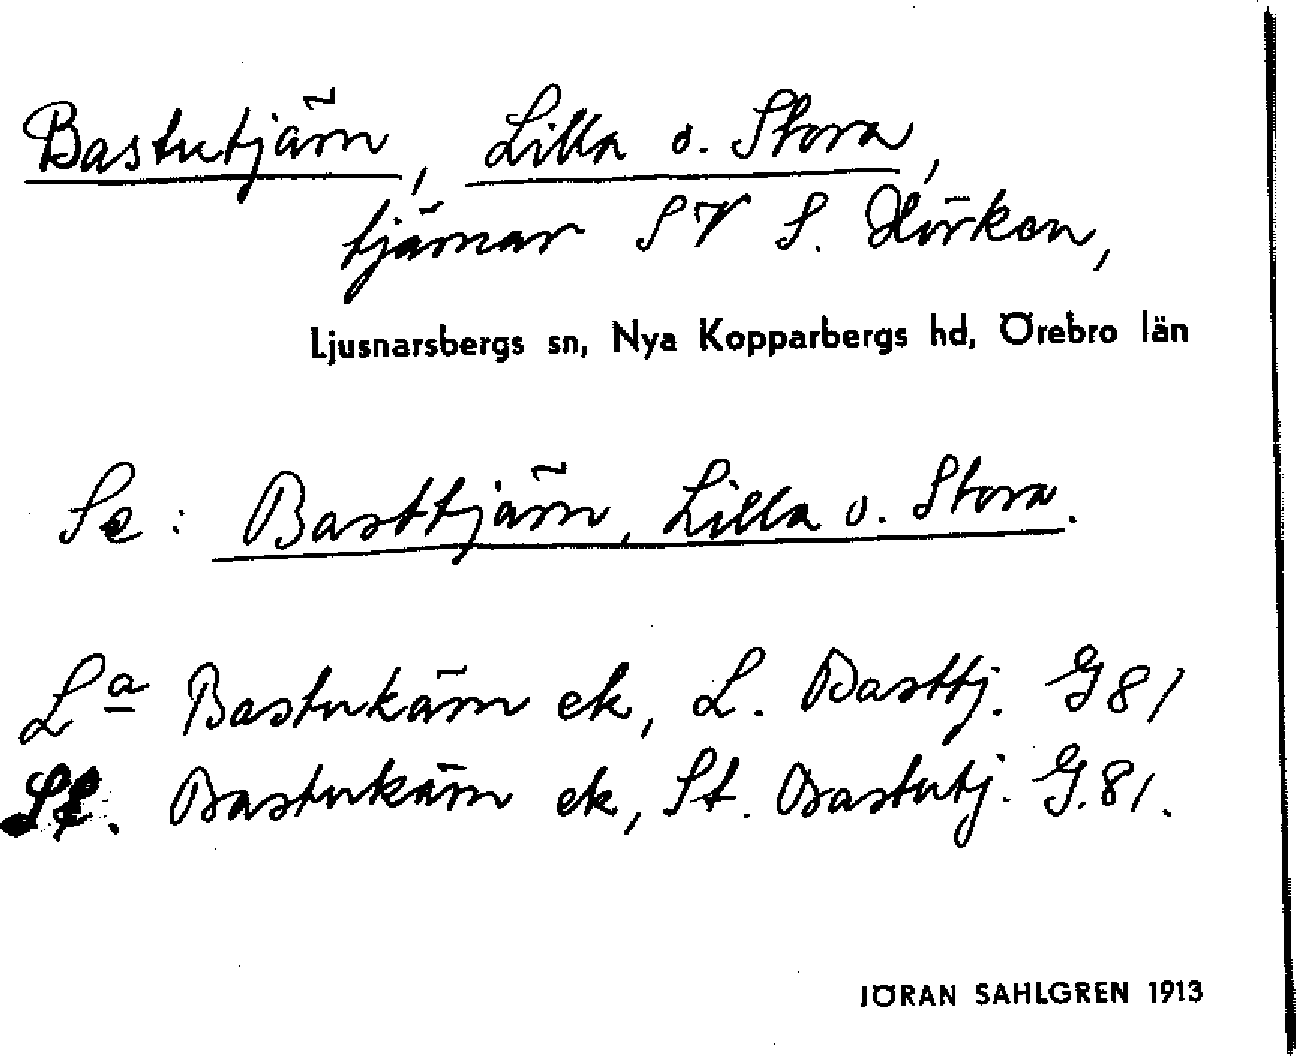 Bastutjärn, Lilla o. Stora,
tjärnar SV S. Hörken,
Ljusnarsbergs sn, Nya Kopparbergs hd, Örebro län
Se: Basttjärn, Lilla o. Stora.
La Bastukärn ek, L. Basttj. G 81
St. Bastukärn ek, St. Bastutj. G. 81.
JÖRAN SAHLGREN 1913